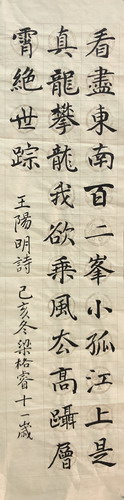 看盡東南百二峯小孤江上是
真龍攀龍我欲乗風去高躡層
霄絕世踪
王陽明詩 己亥冬梁格睿十一歲